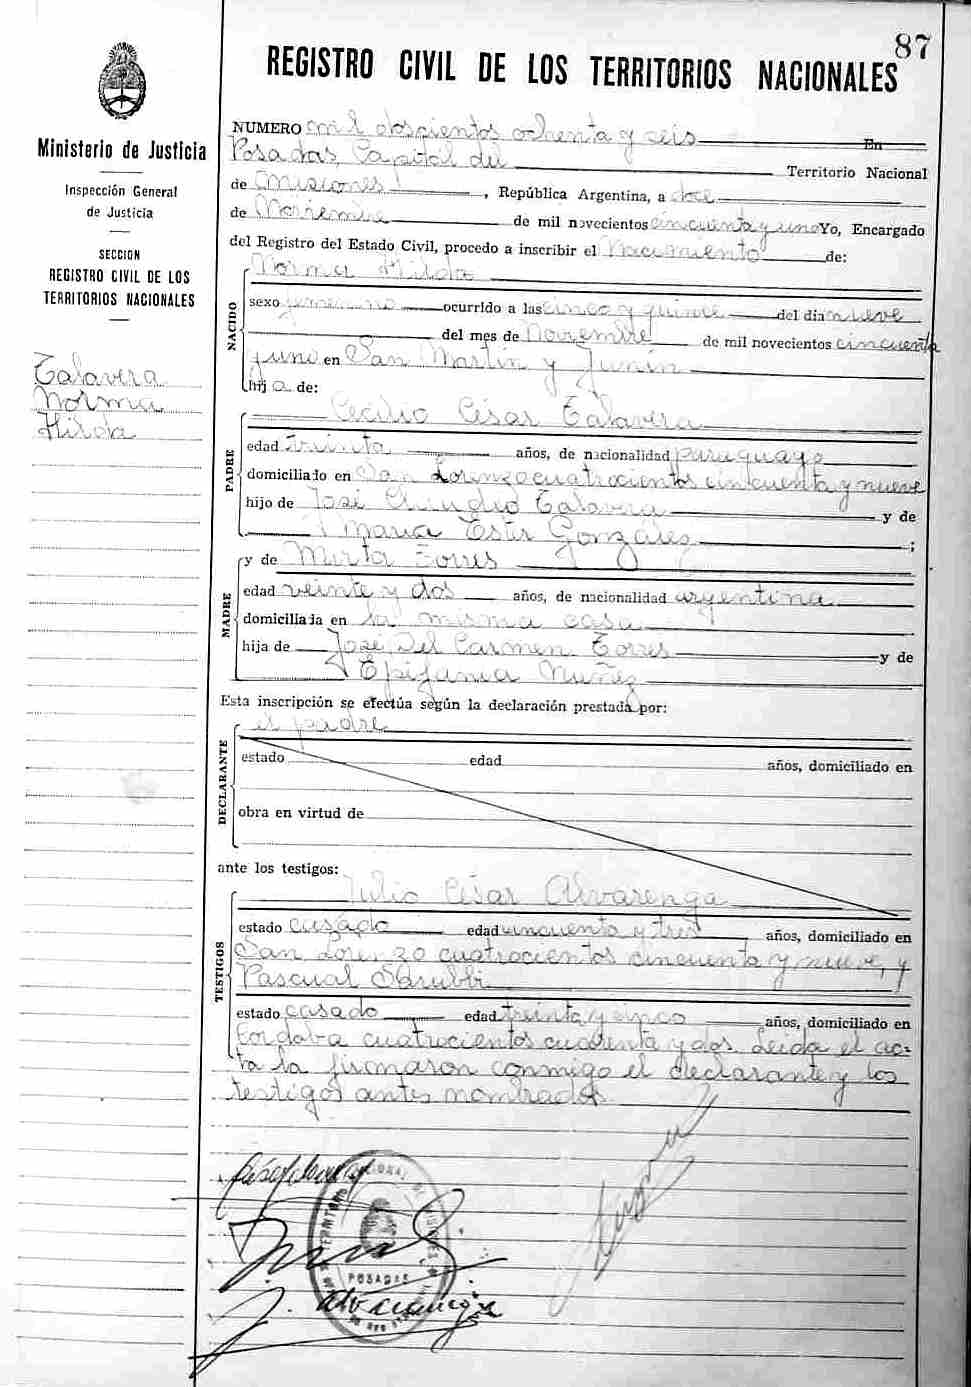 87
REGISTRO CIVIL DE LOS TERRITORIOS NACIONALES
Ministerio de Justicia
Inspección General
de Justicia
SECCION
REGISTRO CIVIL DE LOS
TERRITORIOS NACIONALES
Talavera
Norma
Hilda
NUMERO mil doscientos ochenta y seis En
Posadas, Capital del Territorio Nacional
de Misiones, República Argentina, a doce
de Noviembre de mil novecientos cincuenta y uno Yo, Encargado
del Registro del Estado Civil, procedo a inscribir el Nacimiento de:
NACIDO
Norma Hilda
sexo femenino ocurrido a las cinco y quince del dia nueve
del mes de Noviembre de mil novecientos cincuenta
y uno en San Martín y Junín
hija de:
PADRE
Cecilio César Talavera
edad treinta años, de nacionalidad paraguayo
domiciliado en San Lorenzo cuatrocientos cincuenta y nueve
hijo de José Claudio Talavera y de
María Ester González;
MADRE
y de Mirta Torres
edad veinte y dos años, de nacionalidad argentina
domiciliada en la misma casa
hija de José Del Carmen Torres y de
Epifania Nuñez
Esta inscripción se efectúa según la declaración prestada por:
DECLARANTE
el padre
estado edad años, domiciliado en
obra en virtud de
ante los testigos:
TESTIGOS
Julio César Alvarenga
estado casado edad cincuenta y tres años, domiciliado en
San Lorenzo cuatrocientos cincuenta y nueve, y
Pascual Sarubbi
estado casado edad treinta y cinco años, domiciliado en
Cordoba cuatrocientos cuarenta y dos. Leida el ac-
ta la firmaron conmigo el declarante y los
testigos antes nombrados.
POSADAS
J. Alvarenga